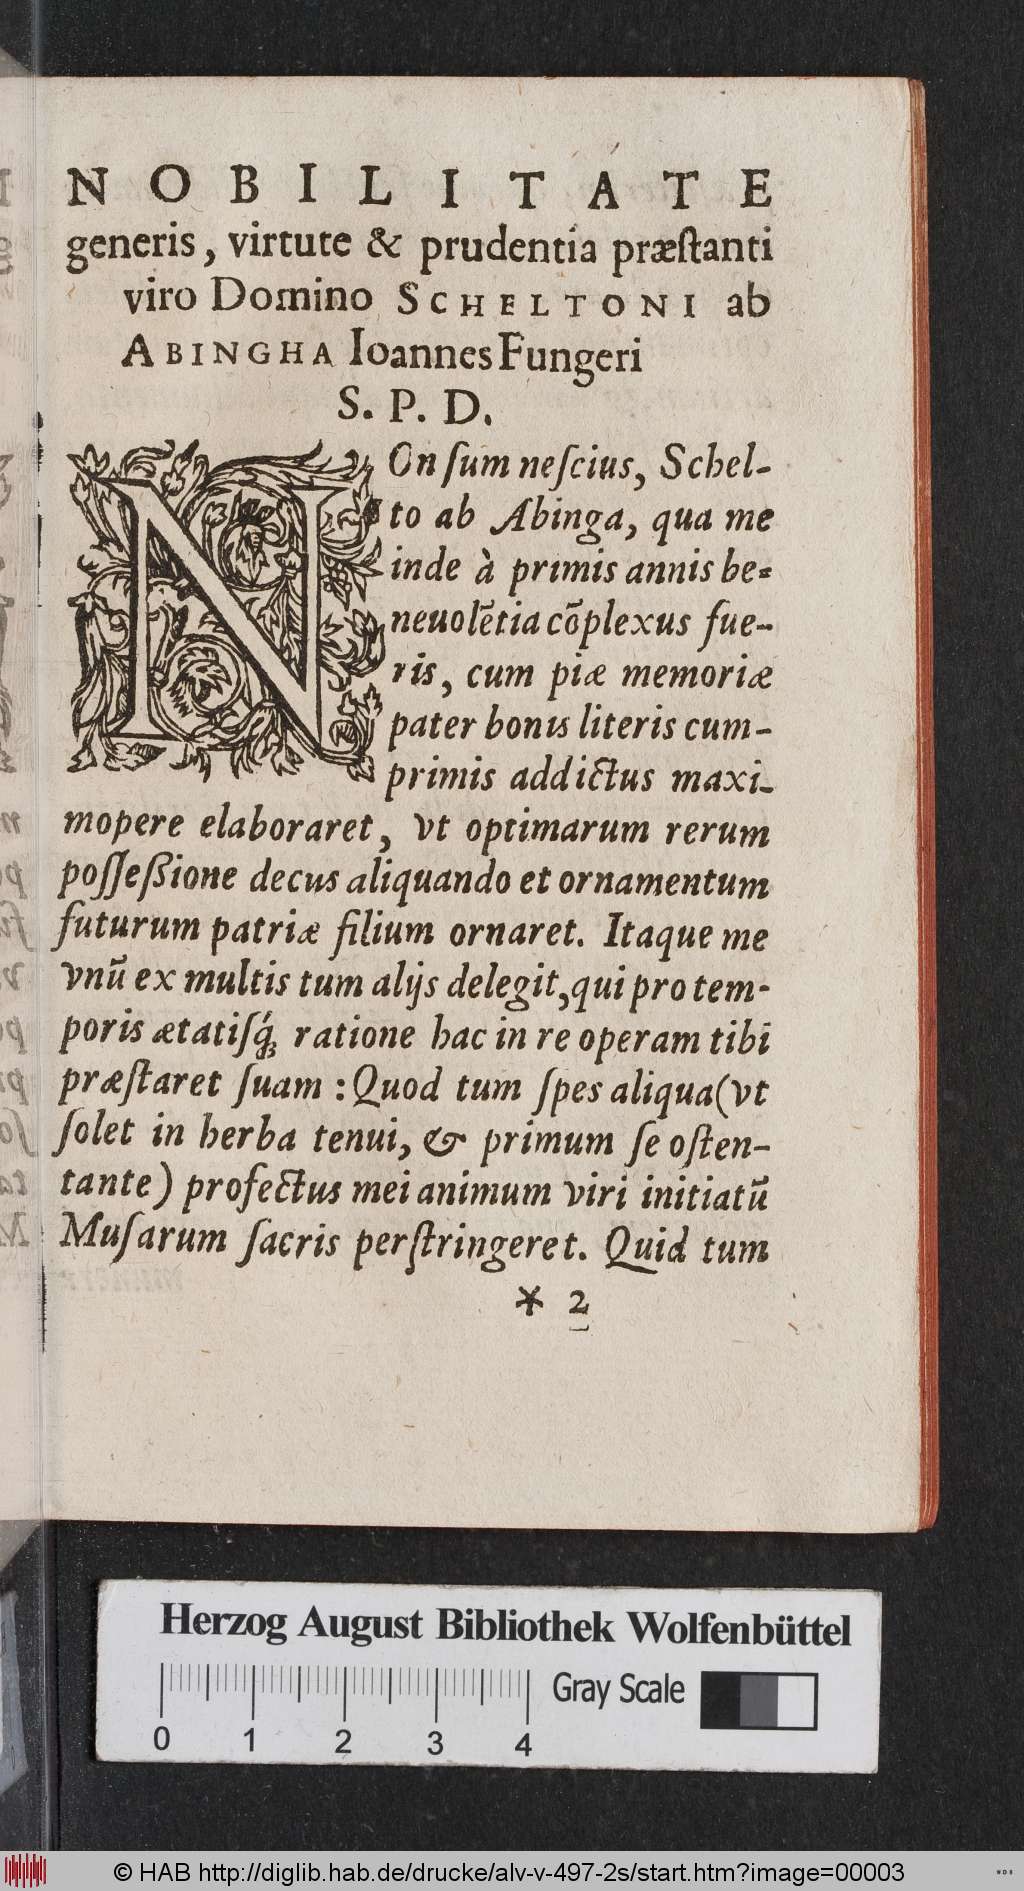 NOBILITATE
generis, virtute & prudentia præſtanti
viro Domino SCHELTONI ab
ABINGHA Ioannes Fungeri
S. P. D.
NOn ſum neſcius, Schel-
to ab Abinga, qua me
inde à primis annis be-
neuolẽtia cõplexus fue-
ris, cum piæ memoriæ
pater bonis literis cum-
primis addictus maxi-
mopere elaboraret, vt optimarum rerum
poſſeßione decus aliquando et ornamentum
futurum patriæ filium ornaret. Itaque me
vnũ ex multis tum alijs delegit, qui pro tem-
poris ætatiſq́ꝫ ratione hac in re operam tibi
præſtaret ſuam : Quod tum ſpes aliqua (vt
ſolet in herba tenui, & primum ſe oſten-
tante) profectus mei animum viri initiatũ
Muſarum ſacris perſtringeret. Quid tum
* 2
Herzog August Bibliothek Wolfenbüttel
Gray Scale
0 1 2 3 4
© HAB http://diglib.hab.de/drucke/alv-v-497-2s/start.htm?image=00003